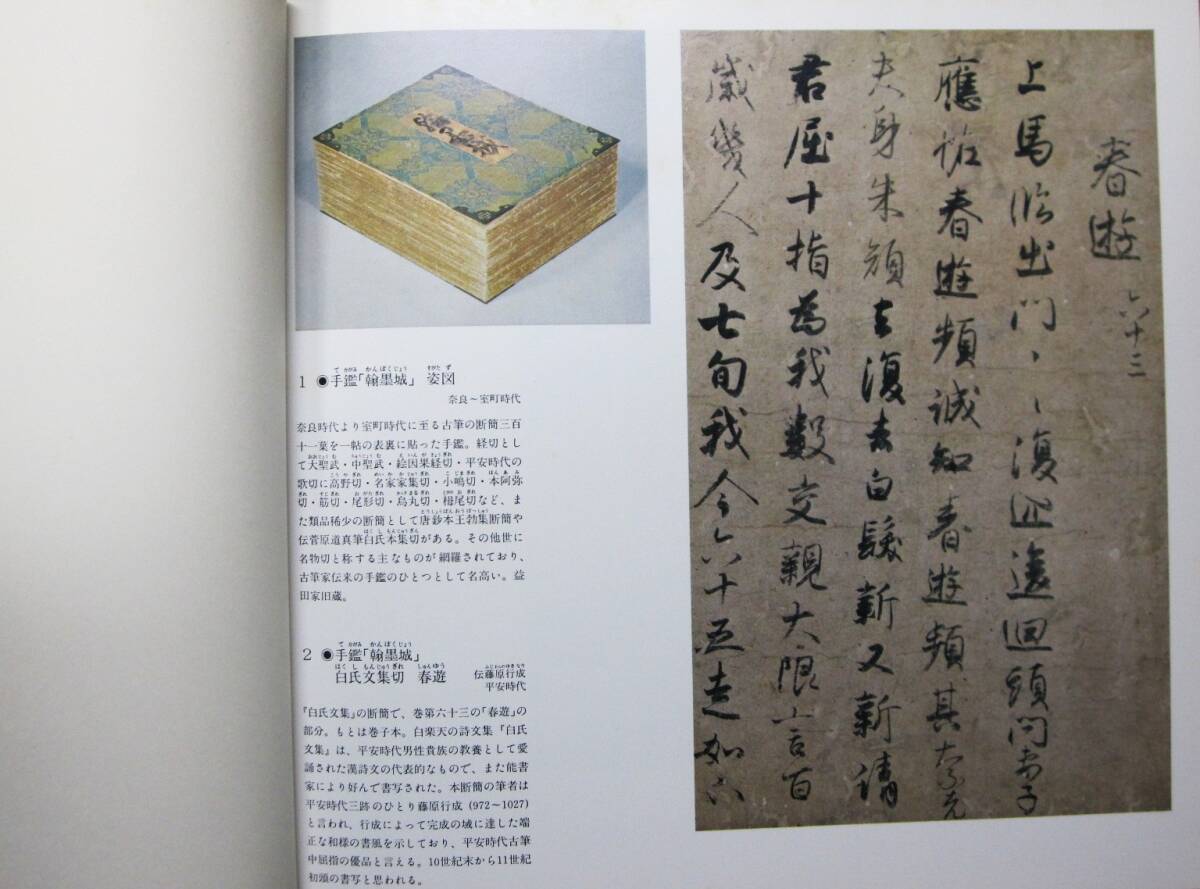 1 ◉手鑑「翰墨城」 姿図
て かがみ かんぼくじょう すがた ず
奈良～室町時代
奈良時代より室町時代に至る古筆の断簡三百
十一葉を一帖の表裏に貼った手鑑。経切とし
て大聖武・中聖武・絵因果経切・平安時代の
歌切に高野切・名家家集切・小嶋切・本阿弥
切・筋切・尾形切・烏丸切・栂尾切など、ま
た類品稀少の断簡として唐鈔本王勃集断簡や
伝菅原道真筆白氏本集切がある。その他世に
名物切と称する主なものが網羅されており、
古筆家伝来の手鑑のひとつとして名高い。益
田家旧蔵。
2 ◉手鑑「翰墨城」
て かがみ かんぼくじょう
白氏文集切 春遊
はく し もんじゅうぎれ しゅんゆう
伝藤原行成
ふじわらのゆきなり
平安時代
『白氏文集』の断簡で、巻第六十三の「春遊」の
部分。もとは巻子本。白楽天の詩文集『白氏
文集』は、平安時代男性貴族の教養として愛
誦された漢詩文の代表的なもので、また能書
家により好んで書写された。本断簡の筆者は
平安時代三跡のひとり藤原行成（972～1027）
と言われ、行成によって完成の域に達した端
正な和様の書風を示しており、平安時代古筆
中屈指の優品と言える。10世紀末から11世紀
初頭の書写と思われる。
春遊 六十三
上馬臨出門、、復逡巡迴頭問妻子
應怪春遊頻誠知春遊頻其奈老
大身朱顔去復去白髮新又新請
君屈十指為我數交親大限百
歲幾人及七旬我今六十五走如